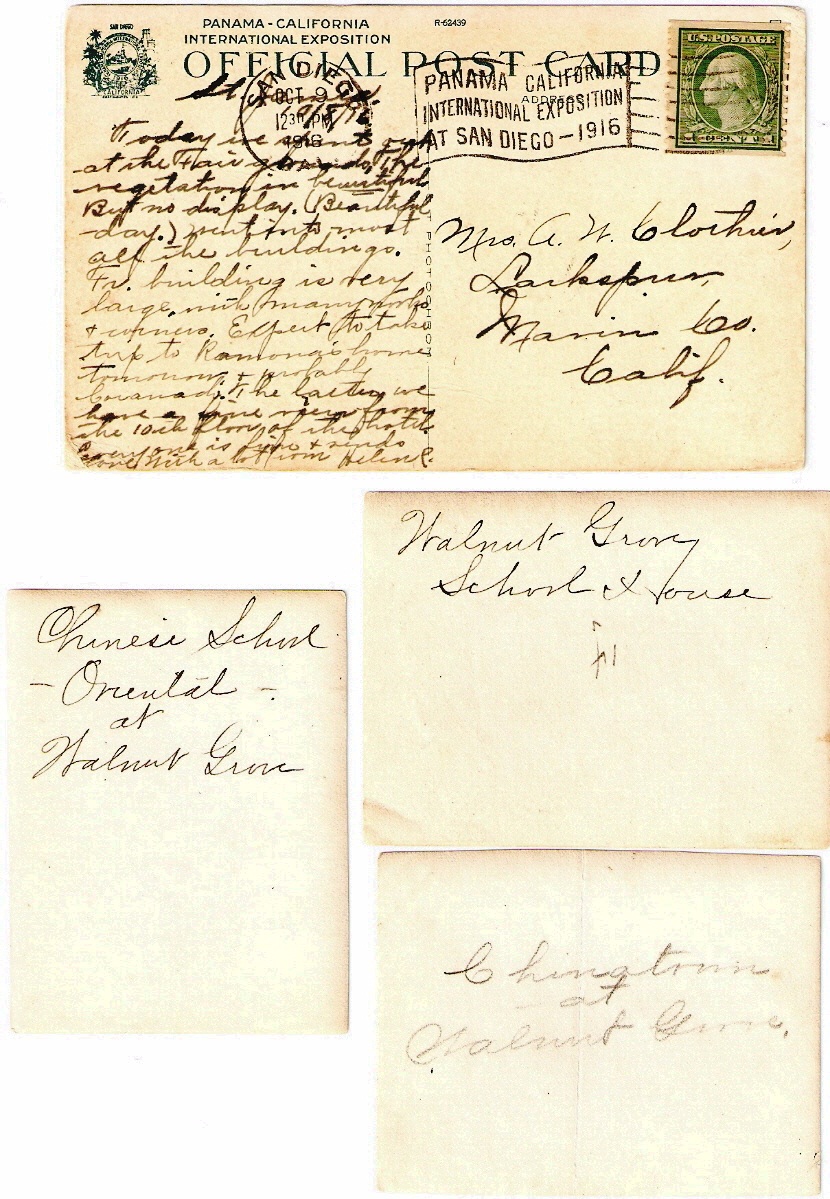 SAN DIEGO
PANAMA-CALIFORNIA
R-62439
INTERNATIONAL EXPOSITION
OFFICIAL POST CARD
ADDRESS
SAN DIEGO
OCT 9
12 30 PM
1916
PANAMA CALIFORNIA
INTERNATIONAL EXPOSITION
AT SAN DIEGO - 1916
U.S. POSTAGE
1 CENT 1
Today we spent
at the Fair grounds. The
vegetation in beautiful
But no display. (Beautiful
day.) went into most
all the buildings.
Fr. building is very
large, with many nooks
& corners. Expect to take
trip to Ramona's home
tomorrow & probably
Coranado. The latter we
have a fine view from
the 10th floor of the hotel.
Everyone is fine & sends
love. With a lot from Helen C.
Mrs. A. W. Clothier,
Larkspur,
Marin Co.
Calif.
Walnut Grove
School House
Chinese School
- Oriental -
at
Walnut Grove
Chinatown
at
Walnut Grove.